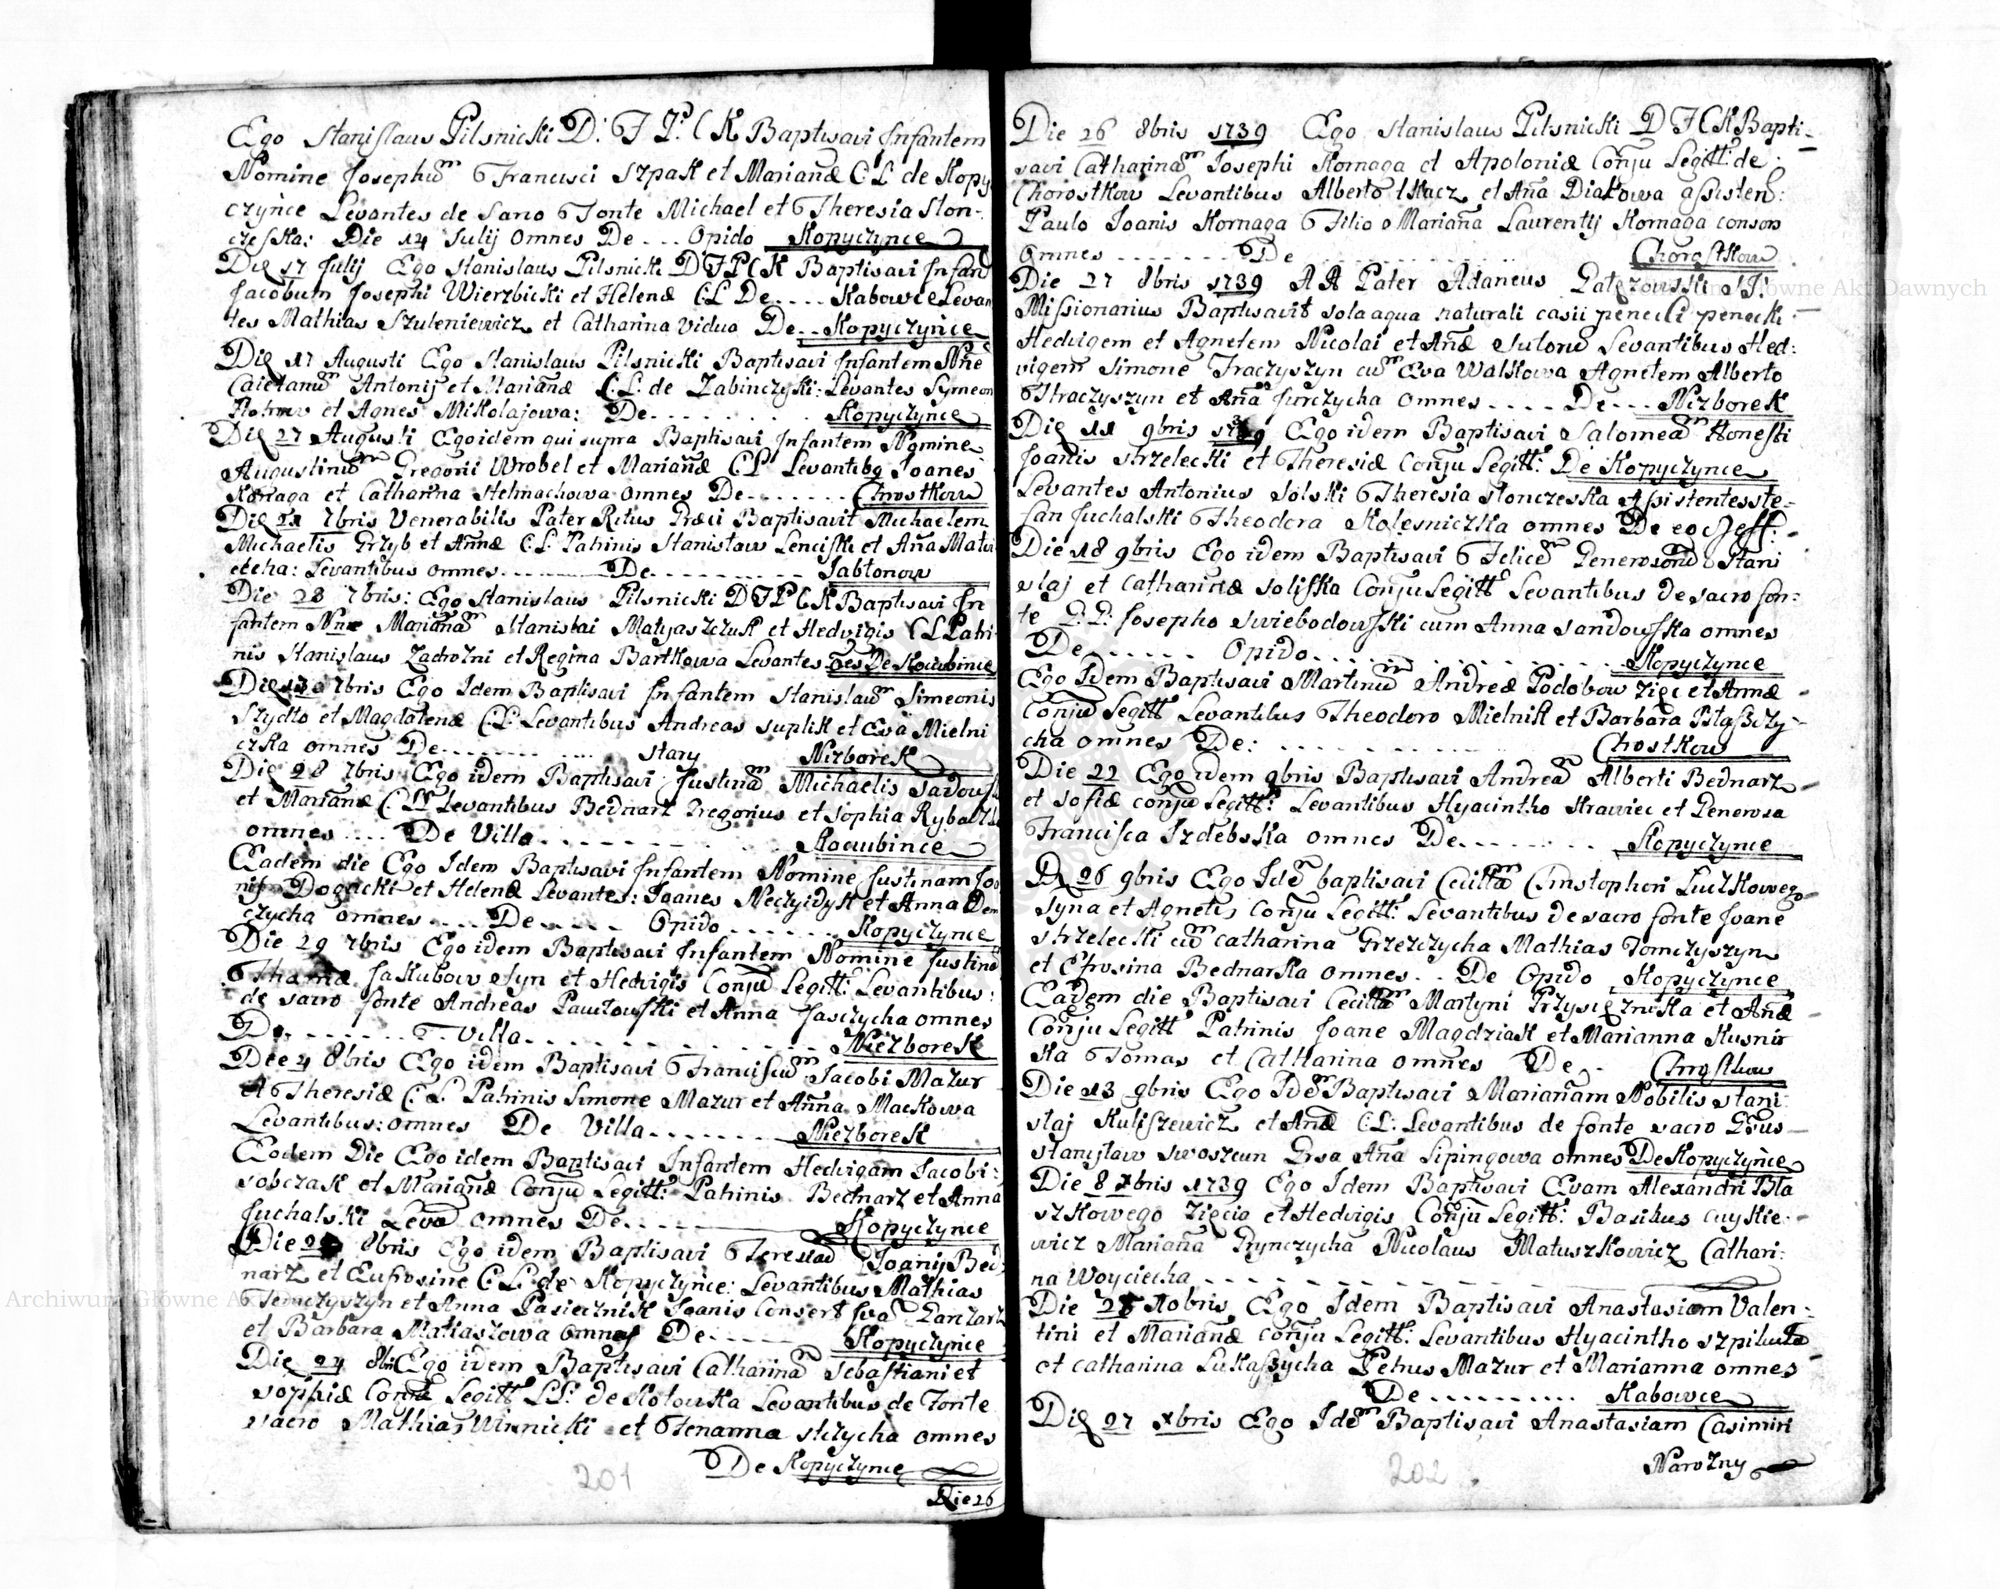 Ego Stanislaus Pilsnicki D: F P: C K Baptisavi Infantem
Nomine Josephum Francisci Szpak et Marianæ C: L de Kopy
czynce Levantes de Sacro Fonte Michael et Theresia Slon-
czeska: Die 14 Julij omnes De ... Opido Kopyczynce
Die 17 Julij Ego Stanislaus Pilsnicki D F P C K Baptisavi Infan
Jacobum Josephi Wierzbicki et Helenæ C: L De .... Kabowce Levan
tes Mathias Szuleniewicz et Catharina vidua De .. Kopyczynce
Die 17 Augusti Ego Stanislaus Pilsnicki Baptisavi Infantem Nne
Caietanum Antonij et Marianæ C: L: de Zabinczyki: Levantes Symeon
et Agnes Mikolajowa: De ........ Kopyczynce
Die 27 Augusti Ego idem qui supra Baptisavi Infantem Nomine
Augustinum Gregorii Wrobel et Marianæ C L Levantibq Joanes
Kornaga et Catharina Stelmachowa omnes De ....... Chrostkow
Die 21 7bris Venerabilis Pater Ritus Græci Baptisavit Michaelem
Michaelis Grzyb et Annæ C: L: Patrinis Stanislaw Lenciski et Aña Matu
eieha: Levantibus omnes ........ De ......... Jablonow
Die 28 7bris: Ego Stanislaus Pilsnicki D F P C K Baptisavi In
fantem Nne Marianam Stanislai Matyaszczuk et Hedvigis C L Patri
nis Stanislaus Zadrozni et Regina Bartkowa Levantes oes De Kociubince
Die 7bris Ego Idem Baptisavi Infantem Stanislaum Simeonis
Szydlo et Magdalenæ C: L: Levantibus Andreas Suplik et Eva Mielni
czka omnes De ............ Stary Nizborek
Die 28 7bris Ego idem Baptisavi Justinam Michaelis Sadows
et Marianæ C LL Levantibus Bednarz Gregorius et Sophia Rybaczka
omnes .... De Villa .......... Kociubince
Eadem die Ego Idem Baptisavi Infantem Nomine Justinam Joa
nis Dogicki et Helenæ Levantes: Joanes Neczyidyk et Anna Dem
czycha omnes .... De ..... Opido ....... Kopyczynce
Die 29 7bris Ego idem Baptisavi Infantem Nomine Justinam
Thamæ Jakubow Syn et Hedvigis Conju Legitt: Levantibus:
de sacro fonte Andreas Pawlowski et Anna Jasczycha omnes
De ........ Villa ............ Niezborek
Die 4 8bris Ego idem Baptisavi Franciscum Jacobi Mazur
et Theresiæ C: L: Patrinis Simone Mazur et Anna Mackowa
Levantibus: omnes De Villa ....... Niezborek
Eodem Die Ego idem Baptisavi Infantem Hedvigam Jacobi:
Sobczak et Marianæ Conju Legitt: Patrinis Bednarz et Anna
Juchalski Leva omnes De ........ Kopyczynce
Die 8bris Ego idem Baptisavi Theresiam Joanij Bed
narz et Eufrosine C: L: de Kopyczynce: Levantibus Mathias
Temczyszyn et Anna Pasiecznik Joanis Consert sva Ganzarz
et Barbara Matiaszowa omnes De ...... Kopyczynce
Die 24 8bris Ego idem Baptisavi Catharinam Sebastiani et
Sophiæ Conju Legitt L L: de Kotowka Levantibus de Fonte
sacro Mathias Winnicki et Thenanna Stczycha omnes
De Kopyczynce
201
Die 26
Die 26 8bris 1739 Ego Stanislaus Pilsnicki D F C K Bapti-
savi Catharinam Josephi Kornaga et Apoloniæ Conju Legitt: de
Chorostkow Levantibus Alberto Tkacz et Aña Diakowa assisten:
Paulo Joanis Kornaga Filio o Mariaña Laurentij Kornaga conson
omnes ........ De ........... Chorostkow
Die 27 8bris 1739 A R Pater Adaneus S J:
Missionarius Baptisavit sola aqua naturali casu
Hedvigem et Agnetem Nicolai et Añæ Sutoru Levantibus Hed:
vigem Simone Traczyszyn cum Eva Walkowa Agnetem Alberto
Thraczyszyn et Aña Jurczycha omnes .... De ... Nizborek
Die 11 9bris 1739 Ego idem Baptisavi Salomeam Honesti
Joanis Strzelecki et Theresiæ Conju Legitt: De Kopyczynce
Levantes Antonius Solski Theresia Slonczeska Assistentes Ste-
fan Juchalski Theodora Kolesniczka omnes De eo
Die 18 9bris Ego idem Baptisavi Felicem Generosoru Stani
slaj et Catharinæ Soliska Conju Legitt Levantibus de sacro fon:
te D: D: Josepho Swiebodowski cum Anna Sandowska omnes
De ....... Opido ................ Kopyczynce
Ego Idem Baptisavi Martinum Andreæ Podobow zięc et Annæ
Conju Legitt Levantibus Theodoro Mielnik et Barbara Błaszczy-
cha omnes De: ............. Chostkow
Die 22 Ego idem 9bris Baptisavi Andream Alberti Bednarz
et Sofiæ conju Legitt: Levantibus Hyacintho Krawiec et Generosa
Francisca Izdebska omnes De ........ Kopyczynce
Die 26 9bris Ego Idem baptisavi Cecillam Christophori Luczkowego
Syna et Agnetis Conju Legitt: Levantibus de sacro fonte Joane
Strzelecki cum Catharina Grzezczycha Mathias Tomczyszyn
et Efrosina Bednarka omnes .. De Opido Kopyczynce
Eadem die Baptisavi Cecillam Martyni Przysiężniska et Añæ
Conju Legitt Patrinis Joane Magdziak et Marianna Kusnir
ka Tomas et Catharina omnes De . Chrostkow
Die 13 9bris Ego Idem Baptisavi Marianam Nobilis Stani
slaj Kuliszewicz et Añæ C: L: Levantibus de fonte sacro Gsus
Stanislaw Swoszeun Grsa Aña Lipingowa omnes De Kopyczynce
Die 8 Xbris 1739 Ego Idem Baptisavi Evam Alexandri Bla
szkowego Zięcia et Hedvigis Conju Legitt: Basilius Cuykie-
wicz Mariaña Grynczycha Nicolaus Matuszkowicz Cathari:
na Woyciecha ............
Die Xobris Ego Idem Baptisavi Anastasiam Valen:
tini et Marianæ conju Legitt: Levantibus Hyacintho Szpilu
et Catharina Lukaszycha Petrus Mazur et Marianna omnes
De .......... Kabowce
Die 27 Xbris Ego Idem Baptisavi Anastasiam Casimiri
Narozny
202
Archiwum Główne Akt Dawnych